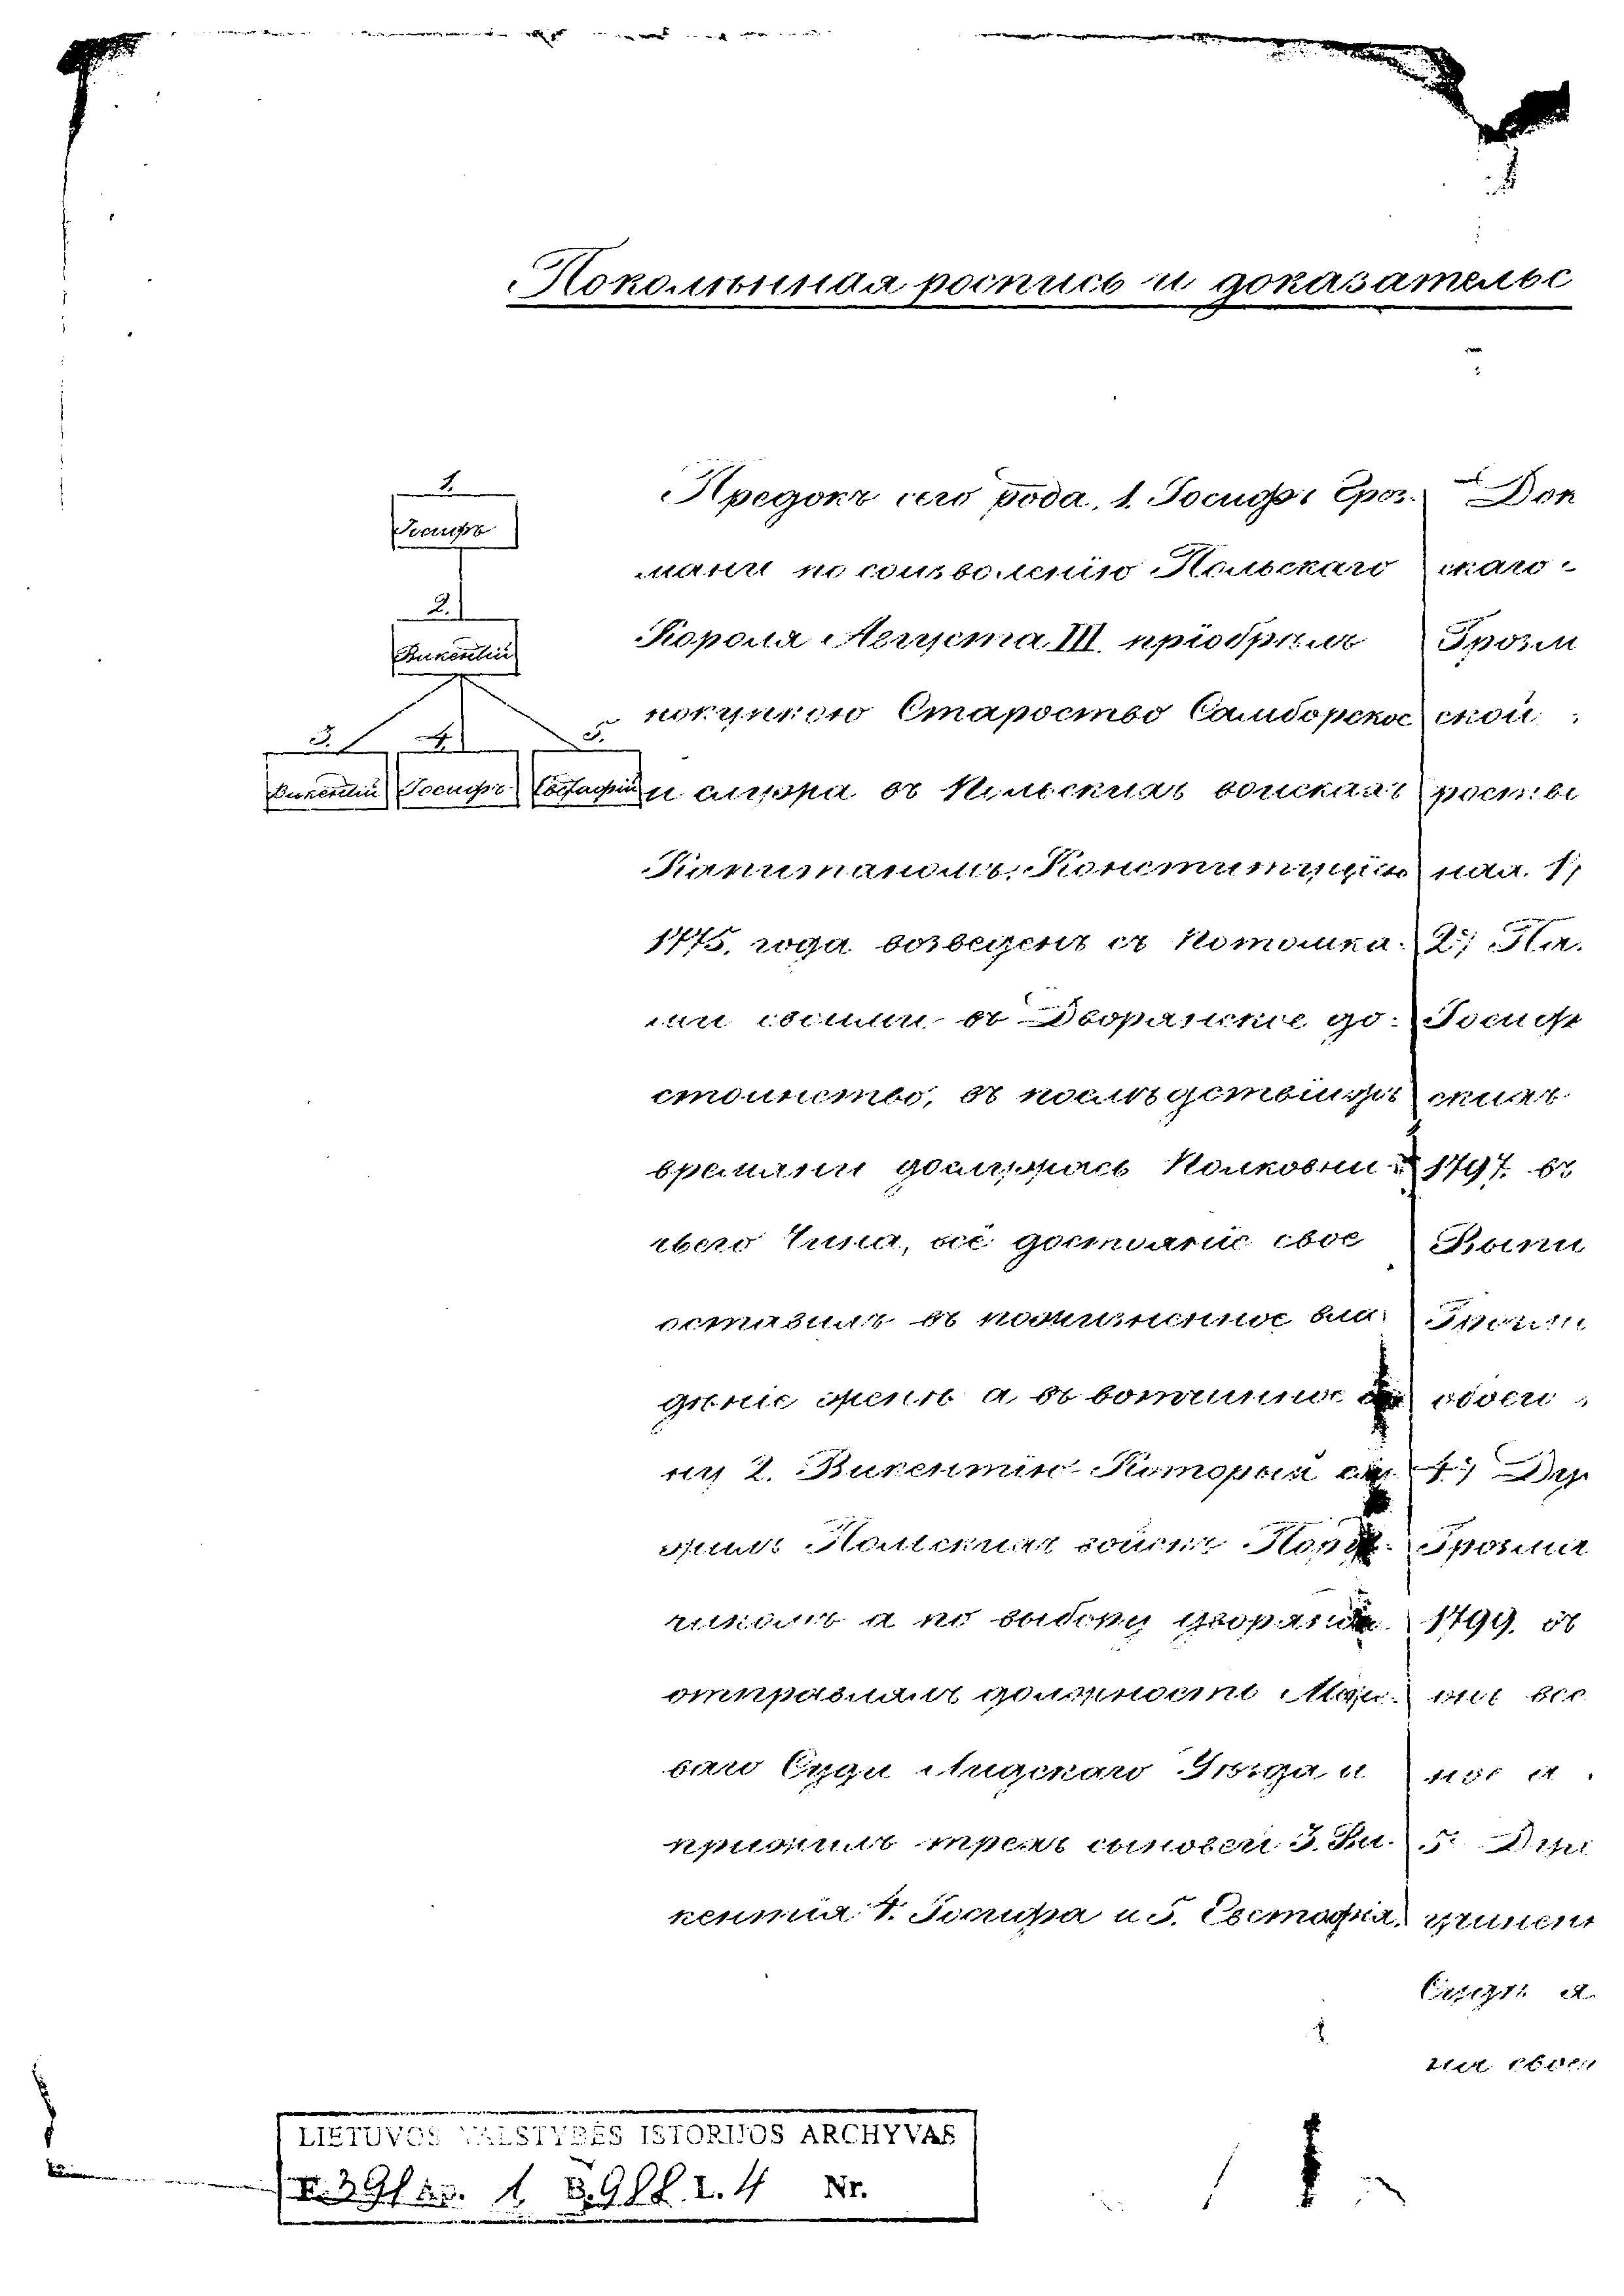 Поколѣнная роспись и доказательс
1.
Іосифъ
2.
Викентій
3. 4. 5.
Викентій Іосифъ Евстафій
Предокъ сего рода, 1. Іосифъ Гроз-
мани по соизволенію Польскаго
Короля Августа III. пріобрѣлъ
покупкою Староство Самборское
и служа въ Польскихъ войскахъ
Капитаномъ, Конституціею
1775. года возведенъ съ потомка-
ми своими въ Дворянское до-
стоинство, въ послѣдствіи
времяни дослужась Полковни-
чьего Чина, всё достояніе свое
оставилъ въ пожизненное вла-
дѣніе женѣ а въ вотчинное сы-
ну 2. Викентію Который слу-
жилъ Польскихъ войскъ Пору-
чикомъ а по выбору дворянъ
отправлялъ должность Меже-
ваго Суди Лидскаго Уѣзда и
прижилъ трехъ сыновей 3. Ви-
кентія 4. Іосифа и 5. Евстафія.
Док
скаго
Грозм
ской
роств
ная. 1,
2, Па
Іосиф
скихъ
1797. въ
Выпи
Грозм
обоей
4, Дух
Грозма
1799. въ
онъ все
ное и
5. Духо
учинен
Судѣ а
на свое
LIETUVOS VALSTYBĖS ISTORIJOS ARCHYVAS
F. 391 Ap. 1 B. 988 L. 4 Nr.